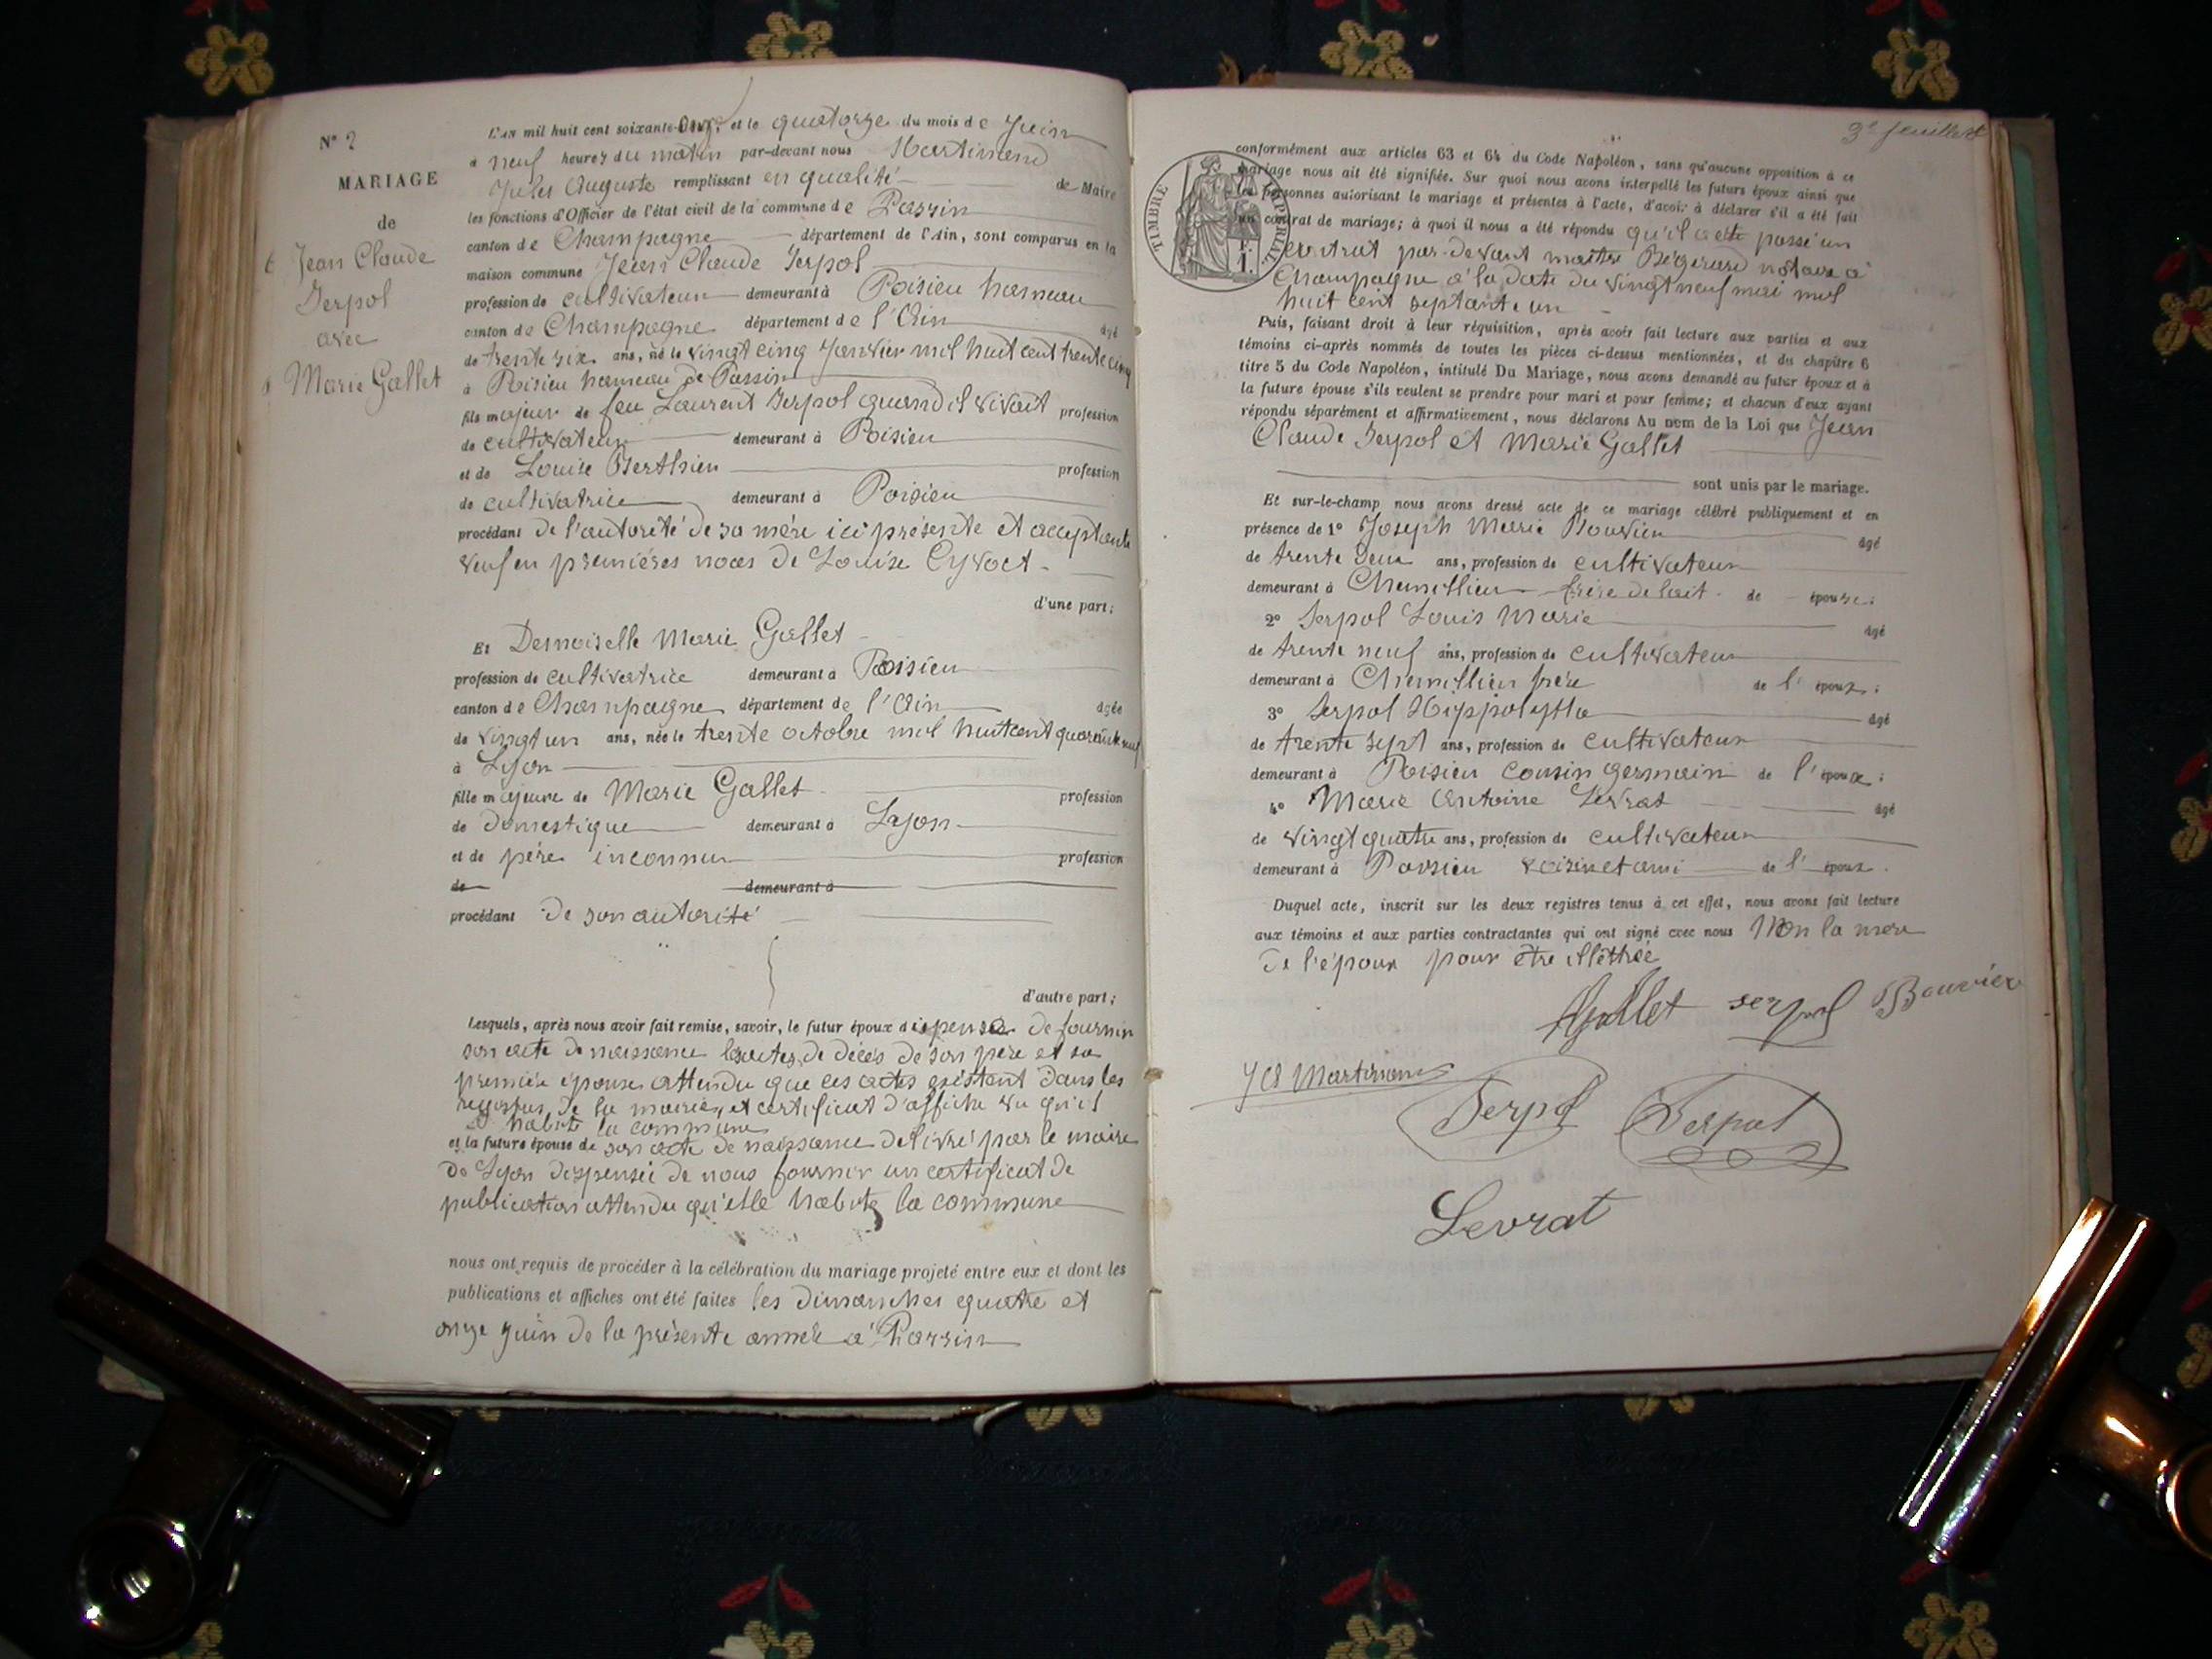 N° 2
MARIAGE
de
Jean Claude
Serpol
avec
Marie Gallet
L'an mil huit cent soixante-onze, et le quatorze du mois de Juin
à neuf heures du matin par-devant nous Martinand
Jules Auguste remplissant en qualité de Maire
les fonctions d'Officier de l'état civil de la commune de Passin
canton de Champagne département de l'Ain, sont comparus en la
maison commune Jean Claude Serpol
profession de cultivateur demeurant à Poisieu hameau
canton de Champagne département de l'Ain âgé
de trente six ans, né le vingt cinq Janvier mil huit cent trente cinq
à Poisieu hameau de Passin
fils majeur de feu Laurent Serpol quand il vivait profession
de cultivateur demeurant à Poisieu
et de Louise Berthier profession
de cultivatrice demeurant à Poisieu
procédant de l'autorité de sa mère ici présente et acceptante
veuf en premières noces de Louise Cyvoct
d'une part;
Et Demoiselle Marie Gallet
profession de cultivatrice demeurant à Poisieu
canton de Champagne département de l'Ain âgée
de vingt un ans, née le trente octobre mil huit cent quarante neuf
à Lyon
fille majeure de Marie Gallet profession
de domestique demeurant à Lyon
et de père inconnu profession
de demeurant à
procédant de son autorité
d'autre part;
Lesquels, après nous avoir fait remise, savoir, le futur époux dispensé de fournir
son acte de naissance les actes de décès de son père et sa
première épouse attendu que ces actes existent dans les
registres de la mairie, et certificat d'affiche vu qu'il
habite la commune
et la future épouse de son acte de naissance delivré par le maire
de Lyon dispensée de nous fournir un certificat de
publication attendu qu'elle habite la commune
nous ont requis de procéder à la célébration du mariage projeté entre eux et dont les
publications et affiches ont été faites les dimanches quatre et
onze juin de la présente année à Passin
3e feuillet
TIMBRE IMPERIAL
1 F.
conformément aux articles 63 et 64 du Code Napoléon, sans qu'aucune opposition à ce
mariage nous ait été signifiée. Sur quoi nous avons interpellé les futurs époux ainsi que
les personnes autorisant le mariage et présentes à l'acte, d'avoir à déclarer s'il a été fait
un contrat de mariage; à quoi il nous a été répondu qu'il a été passé un
contrat par-devant maître notaire à
Champagne à la date du vingt neuf mai mil
huit cent septante un
Puis, faisant droit à leur réquisition, après avoir fait lecture aux parties et aux
témoins ci-après nommés de toutes les pièces ci-dessus mentionnées, et du chapitre 6
titre 5 du Code Napoléon, intitulé Du Mariage, nous avons demandé au futur époux et à
la future épouse s'ils veulent se prendre pour mari et pour femme; et chacun d'eux ayant
répondu séparément et affirmativement, nous déclarons Au nom de la Loi que Jean
Claude Serpol et Marie Gallet
sont unis par le mariage.
Et sur-le-champ nous avons dressé acte de ce mariage célébré publiquement et en
présence de 1° Joseph Marie Bouvier âgé
de trente deux ans, profession de cultivateur
demeurant à Chemillieu frère de lait de épouse;
2° Serpol Louis Marie âgé
de trente neuf ans, profession de cultivateur
demeurant à Chemillieu frère de l'époux;
3° Serpol Hippolytte âgé
de trente sept ans, profession de cultivateur
demeurant à Poisieu cousin germain de l'époux;
4° Marie Antoine Levrat âgé
de vingt quatre ans, profession de cultivateur
demeurant à Poisieu voisin et ami de l'époux.
Duquel acte, inscrit sur les deux registres tenus à cet effet, nous avons fait lecture
aux témoins et aux parties contractantes qui ont signé avec nous Non la mère
de l'époux pour être illettrée
Gallet Serpol Bouvier
JA Martinand
Serpol Serpol
Levrat